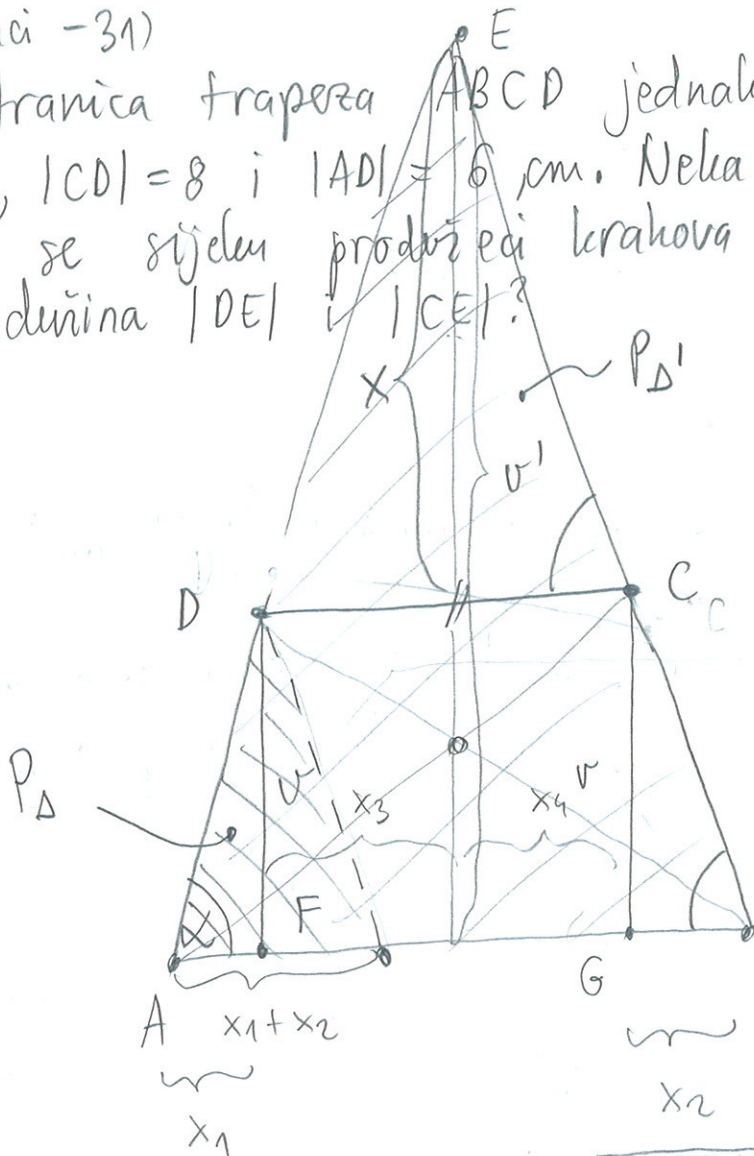 -31)
E
trapeza ABCD
, |CD| = 8 i |AD| = 6 cm. Neka
se sijeku produžeci krakova
dužina |DE| i |CE|?
X
P∆'
v'
D
C
C
P∆
v
x3
x4
v
α
F
A
x1 + x2
G
x1
x2